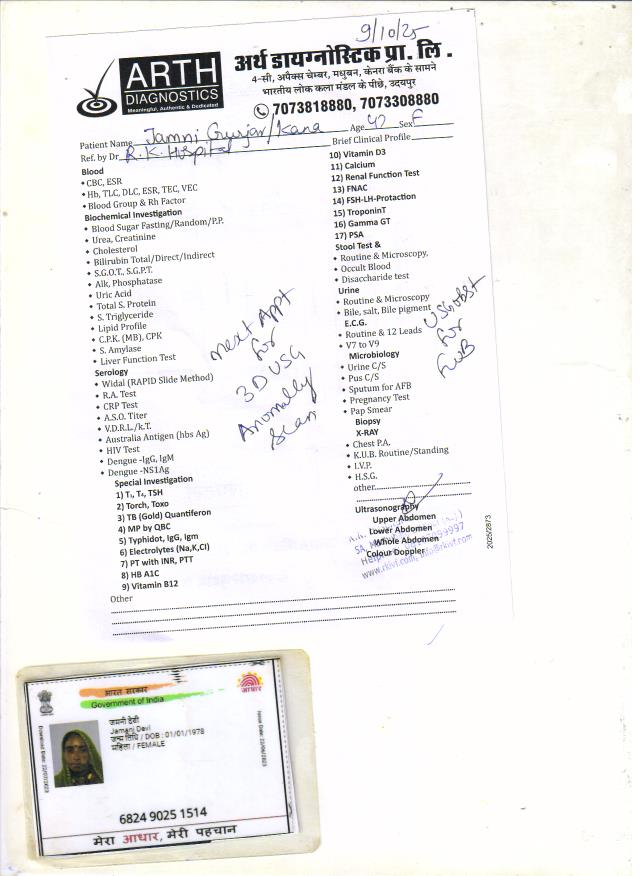 9/10/25
ARTH
DIAGNOSTICS
Meaningful, Authentic & Dedicated
अर्थ डायग्नोस्टिक प्रा. लि.
4-सी, अपैक्स चेम्बर, मधुबन, केनरा बैंक के सामने
भारतीय लोक कला मंडल के पीछे, उदयपुर
7073818880, 7073308880
Patient Name Jamni Gurjar/Kana Age 47 Sex F
Ref. by Dr. R.K. Hospital Brief Clinical Profile
Blood
• CBC, ESR
• Hb, TLC, DLC, ESR, TEC, VEC
• Blood Group & Rh Factor
Biochemical Investigation
• Blood Sugar Fasting/Random/P.P.
• Urea, Creatinine
• Cholesterol
• Bilirubin Total/Direct/Indirect
• S.G.O.T., S.G.P.T.
• Alk, Phosphatase
• Uric Acid
• Total S. Protein
• S. Triglyceride
• Lipid Profile
• C.P.K. (MB), CPK
• S. Amylase
• Liver Function Test
Serology
• Widal (RAPID Slide Method)
• R.A. Test
• CRP Test
• A.S.O. Titer
• V.D.R.L./k.T.
• Australia Antigen (hbs Ag)
• HIV Test
• Dengue -IgG, IgM
• Dengue -NS1Ag
Special Investigation
1) T₃, T₄, TSH
2) Torch, Toxo
3) TB (Gold) Quantiferon
4) MP by QBC
5) Typhidot, IgG, Igm
6) Electrolytes (Na,K,Cl)
7) PT with INR, PTT
8) HB A1C
9) Vitamin B12
Other
next Appt
for
3D USG
Anomally
Scan
10) Vitamin D3
11) Calcium
12) Renal Function Test
13) FNAC
14) FSH-LH-Protaction
15) TroponinT
16) Gamma GT
17) PSA
Stool Test &
• Routine & Microscopy,
• Occult Blood
• Disaccharide test
Urine
• Routine & Microscopy
• Bile, salt, Bile pigment
E.C.G.
• Routine & 12 Leads
• V7 to V9
Microbiology
• Urine C/S
• Pus C/S
• Sputum for AFB
• Pregnancy Test
• Pap Smear
Biopsy
X-RAY
• Chest P.A,
• K.U.B. Routine/Standing
• I.V.P.
• H.S.G.
other
Ultrasonography
Upper Abdomen
Lower Abdomen
Whole Abdomen
Colour Doppler
USG obst
for
FWB
www.rkivf.com, info@rkivf.com
2025/2873
भारत सरकार
Government of India
आधार
जमनी देवी
Jamani Devi
जन्म तिथि / DOB : 01/01/1978
महिला / FEMALE
6824 9025 1514
मेरा आधार, मेरी पहचान